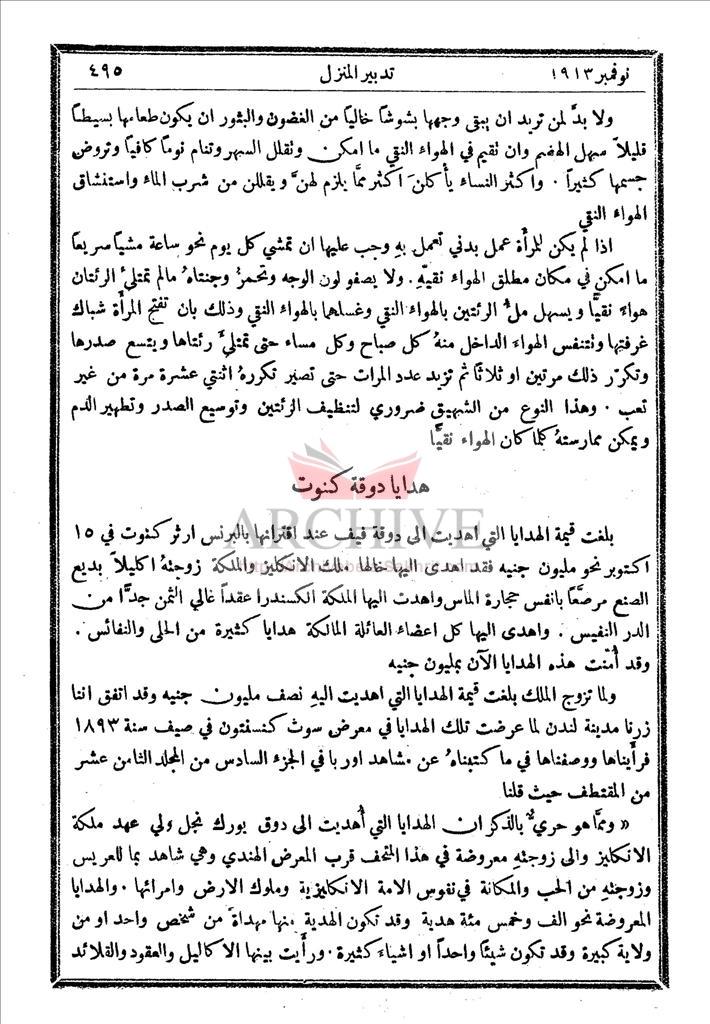 نوفمبر ١٩١٣
تدبير المنزل
٤٩٥
ولا بدَّ لمن تريد ان يبقى وجهها بشوشاً خالياً من الغضون والبثور ان يكون طعامها بسيطاً
قليلاً سهل الهضم وان تقيم في الهواء النقي ما امكن وتقلل السهر وتنام نوماً كافياً وتروض
جسمها كثيراً . واكثر النساء يأكلنَ اكثر ممَّا يلزم لهنَّ ويقللن من شرب الماء واستنشاق
الهواء النقي
اذا لم يكن للمرأة عمل بدني تعمل بهِ وجب عليها ان تمشي كل يوم نحو ساعة مشياً سريعاً
ما امكن في مكان مطلق الهواء نقيّه . ولا يصفو لون الوجه وتحمرّ وجنتاهُ ما لم تمتلئ الرئتان
هواءً نقيًّا ويسهل ملءُ الرئتين بالهواء النقي وغسلهما بالهواء النقي وذلك بان تفتح المرأة شباك
غرفتها وتتنفس الهواء الداخل منهُ كل صباح وكل مساء حتى تمتلئَ رئتاها ويتسع صدرها
وتكرّر ذلك مرتين او ثلاثاً ثم تزيد عدد المرات حتى تصير تكررهُ اثنتي عشرة مرة من غير
تعب . وهذا النوع من الشهيق ضروري لتنظيف الرئتين وتوسيع الصدر وتطهير الدم
ويمكن ممارستهُ كلما كان الهواء نقيًّا
هدايا دوقة كنوت
بلغت قيمة الهدايا التي اهديت الى دوقة فيف عند اقترانها بالبرنس ارثر كنوت في ١٥
اكتوبر نحو مليون جنيه فقد اهدى اليها خالها ملك الانكليز والملكة زوجتهُ اكليلاً بديع
الصنع مرصّعاً بانفس حجارة الماس واهدت اليها الملكة الكسندرا عقداً غالي الثمن جدًّا من
الدر النفيس . واهدى اليها كل اعضاء العائلة المالكة هدايا كثيرة من الحلى والنفائس .
وقد أُمّنت هذه الهدايا الآن بمليون جنيه
ولما تزوج الملك بلغت قيمة الهدايا التي اهديت اليهِ نصف مليون جنيه وقد اتفق اننا
زرنا مدينة لندن لما عرضت تلك الهدايا في معرض سوث كنسنتون في صيف سنة ١٨٩٣
فرأيناها ووصفناها في ما كتبناهُ عن مشاهد اوربا في الجزء السادس من المجلد الثامن عشر
من المقتطف حيث قلنا
« وممَّا هو حريٌّ بالذكر ان الهدايا التي أُهديت الى دوق يورك نجل ولي عهد مملكة
الانكليز والى زوجتهِ معروضة في هذا المتحف قرب المعرض الهندي وهي شاهد بما للعريس
وزوجتهِ من الحب والمكانة في نفوس الامة الانكليزية وملوك الارض وامرائها . والهدايا
المعروضة نحو الف وخمس مئة هدية وقد تكون الهدية منها مهداةً من شخص واحد او من
ولاية كبيرة وقد تكون شيئاً واحداً او اشياء كثيرة . ورأيت بينها الاكاليل والعقود والقلائد
ARCHIVE